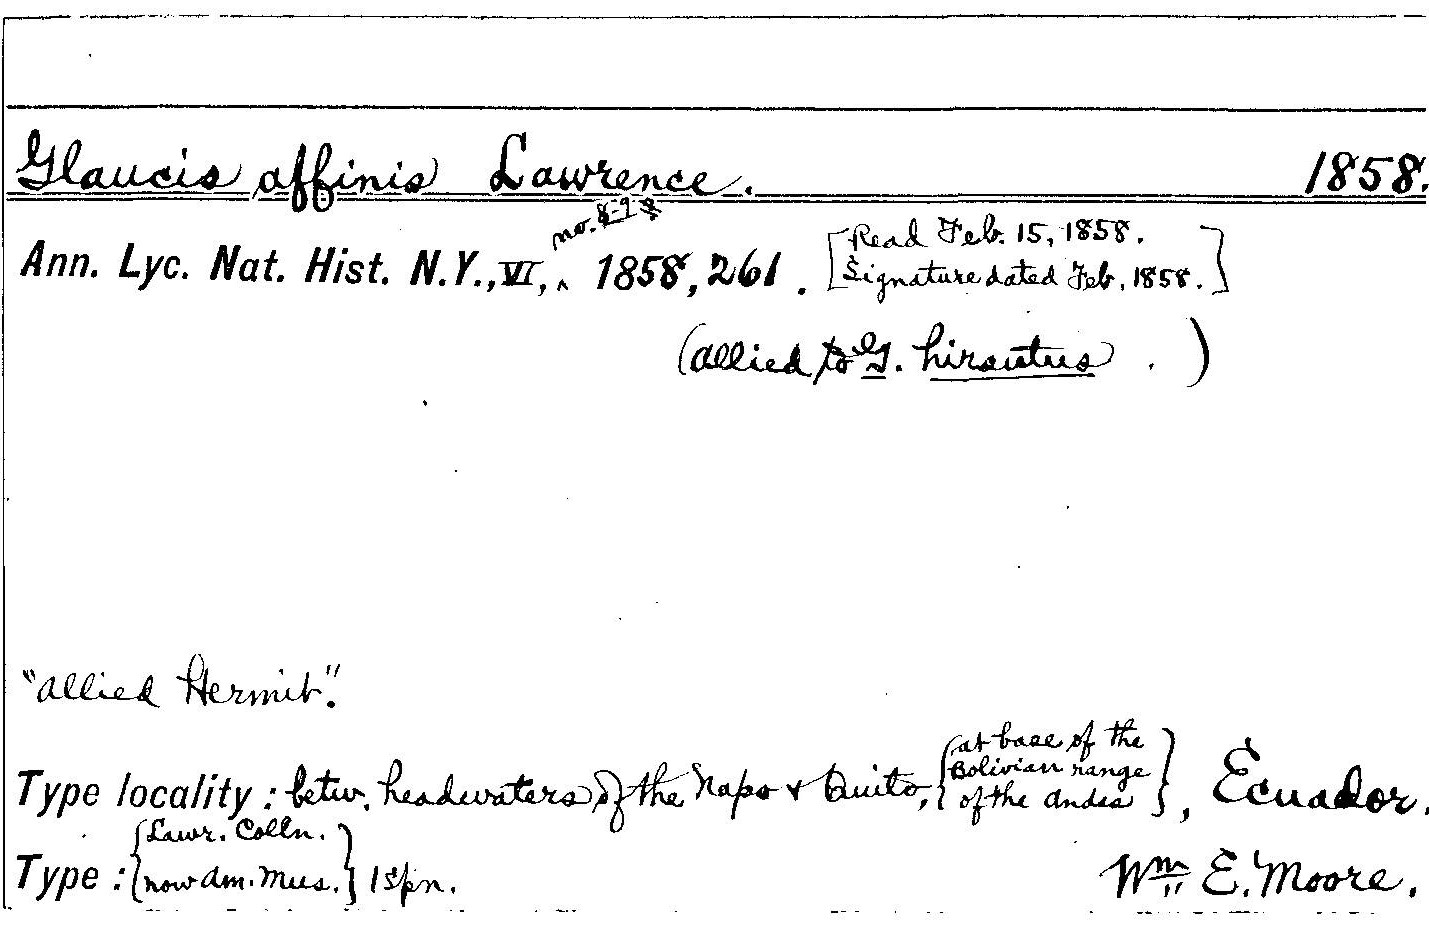 Glaucis affinis Lawrence. 1858.
no. 8-9
Ann. Lyc. Nat. Hist. N.Y., VI, ^ 1858, 261. [Read Feb. 15, 1858.
Signature dated Feb. 1858.]
(allied to G. hirsutus . )
"allied Hermit".
Type locality: betw. headwaters of the Napo + Quito, {at base of the
Bolivian range
of the Andes}, Ecuador.
Type: {Lawr. Colln.
now Am. Mus.} 1 spn. Wm E. Moore.